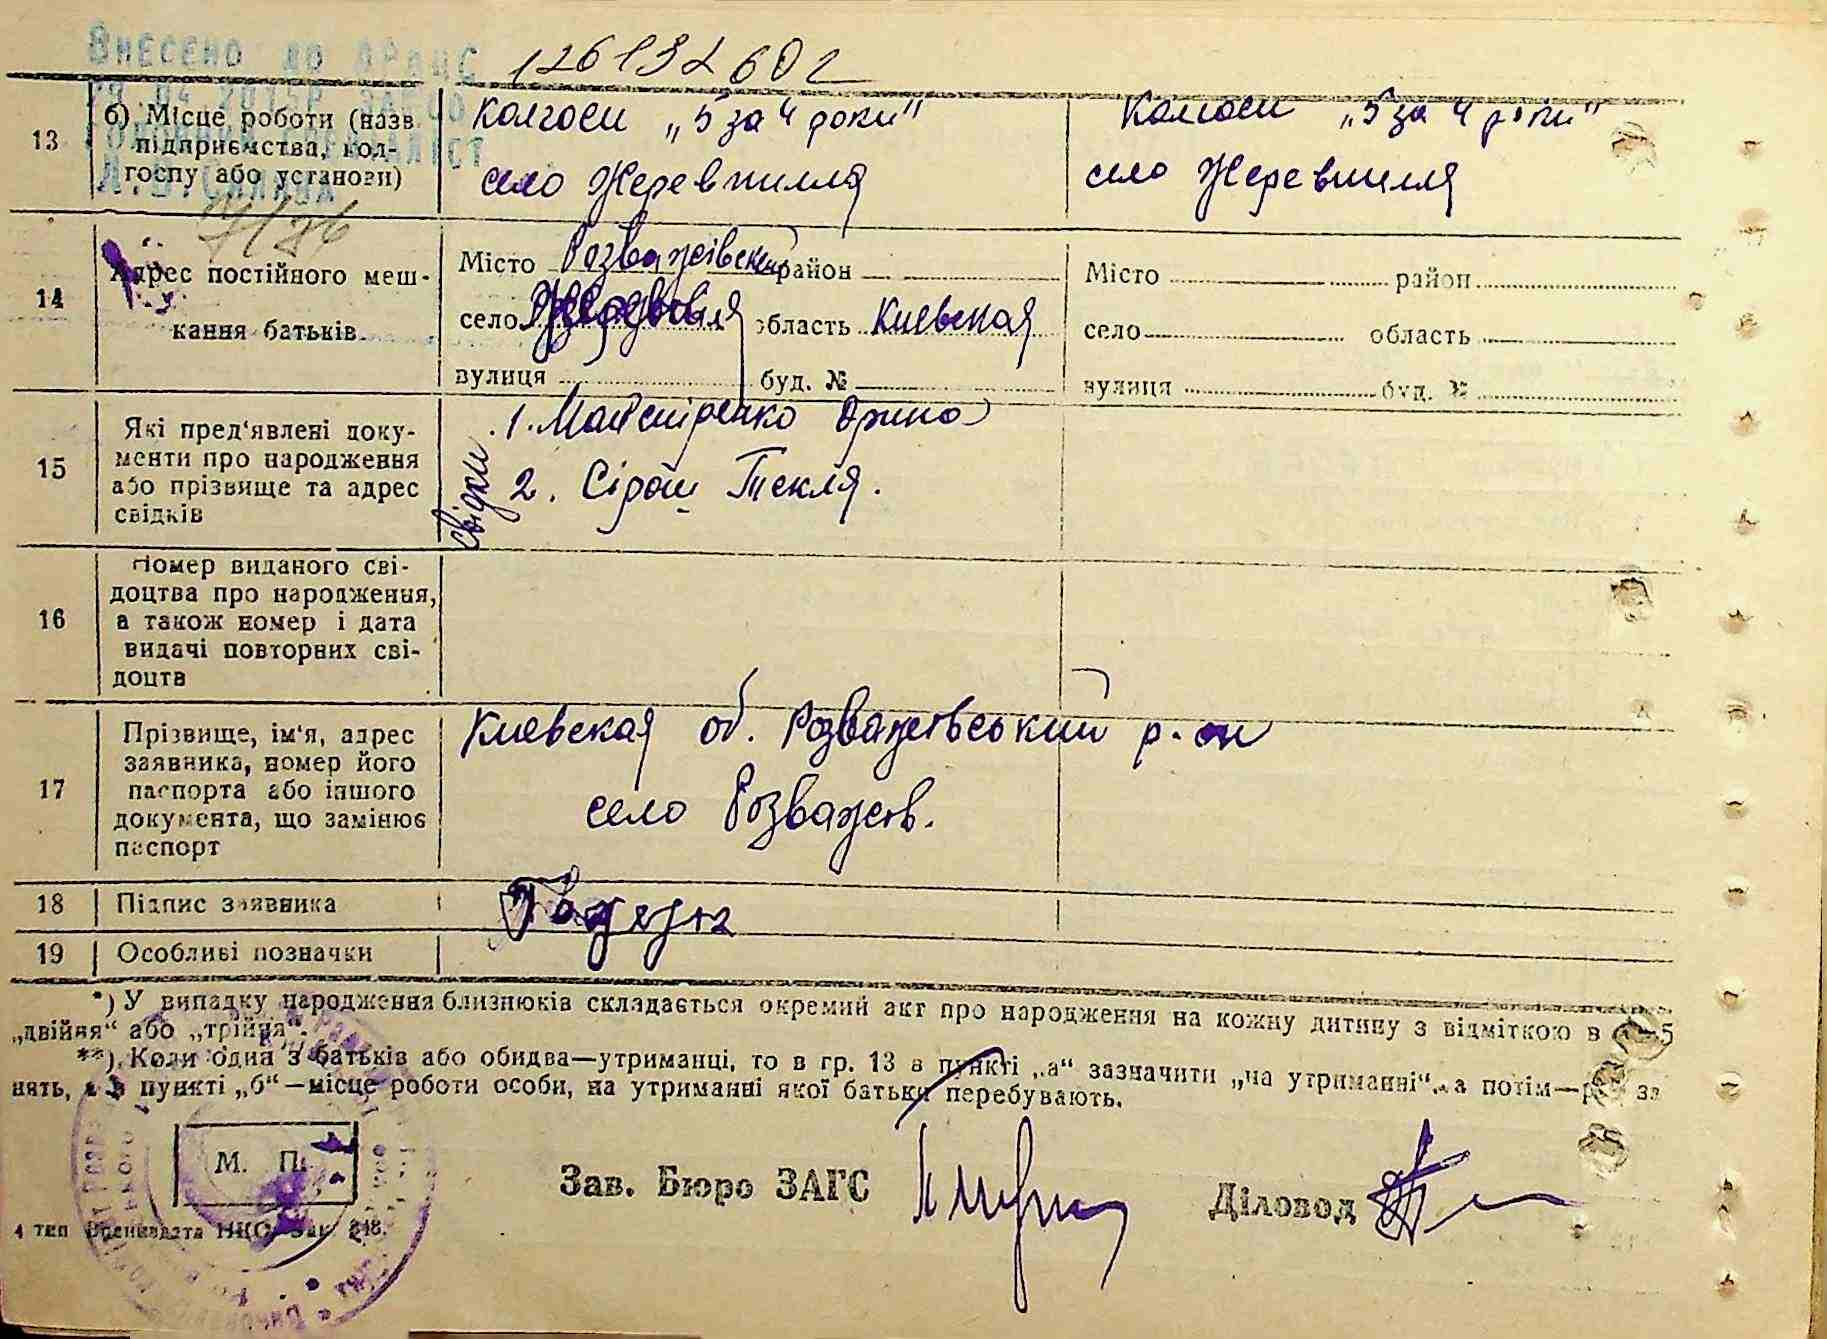 Внесено до ДРАЦС
13
б) Місце роботи (назв.
підприємства, кол-
госпу або установи)
Колгосп „5 за 4 роки"
село Жеревпилля
Колгосп „5 за 4 роки"
село Жеревпилля
14
Адрес постійного меш-
кання батьків
Місто Розважівский район
село область Киевская
вулиця буд. №
Місто район
село область
вулиця буд. №
15
Які пред'явлені доку-
менти про народження
або прізвище та адрес
свідків
свідки
1. Майстренко Орина
2. Сірош Текля.
16
Номер виданого сві-
доцтва про народження,
а також номер і дата
видачі повторних сві-
доцтв
17
Прізвище, ім'я, адрес
заявника, номер його
паспорта або іншого
документа, що замінює
паспорт
Киевская об. Розважівський р-он
село Розважів.
18 Підпис заявника
19 Особливі позначки
*) У випадку народження близнюків складається окремий акт про народження на кожну дитину з відміткою в 5
„двійня" або „трійня".
**) Коли один з батьків або обидва—утриманці, то в гр. 13 в пункті „а" зазначити „на утриманні", а потім— за
нять, а в пункті „б"—місце роботи особи, на утриманні якої батьки перебувають.
М. П.
Зав. Бюро ЗАГС
Діловод
4 тип Воениздата НКО Зак. 248.